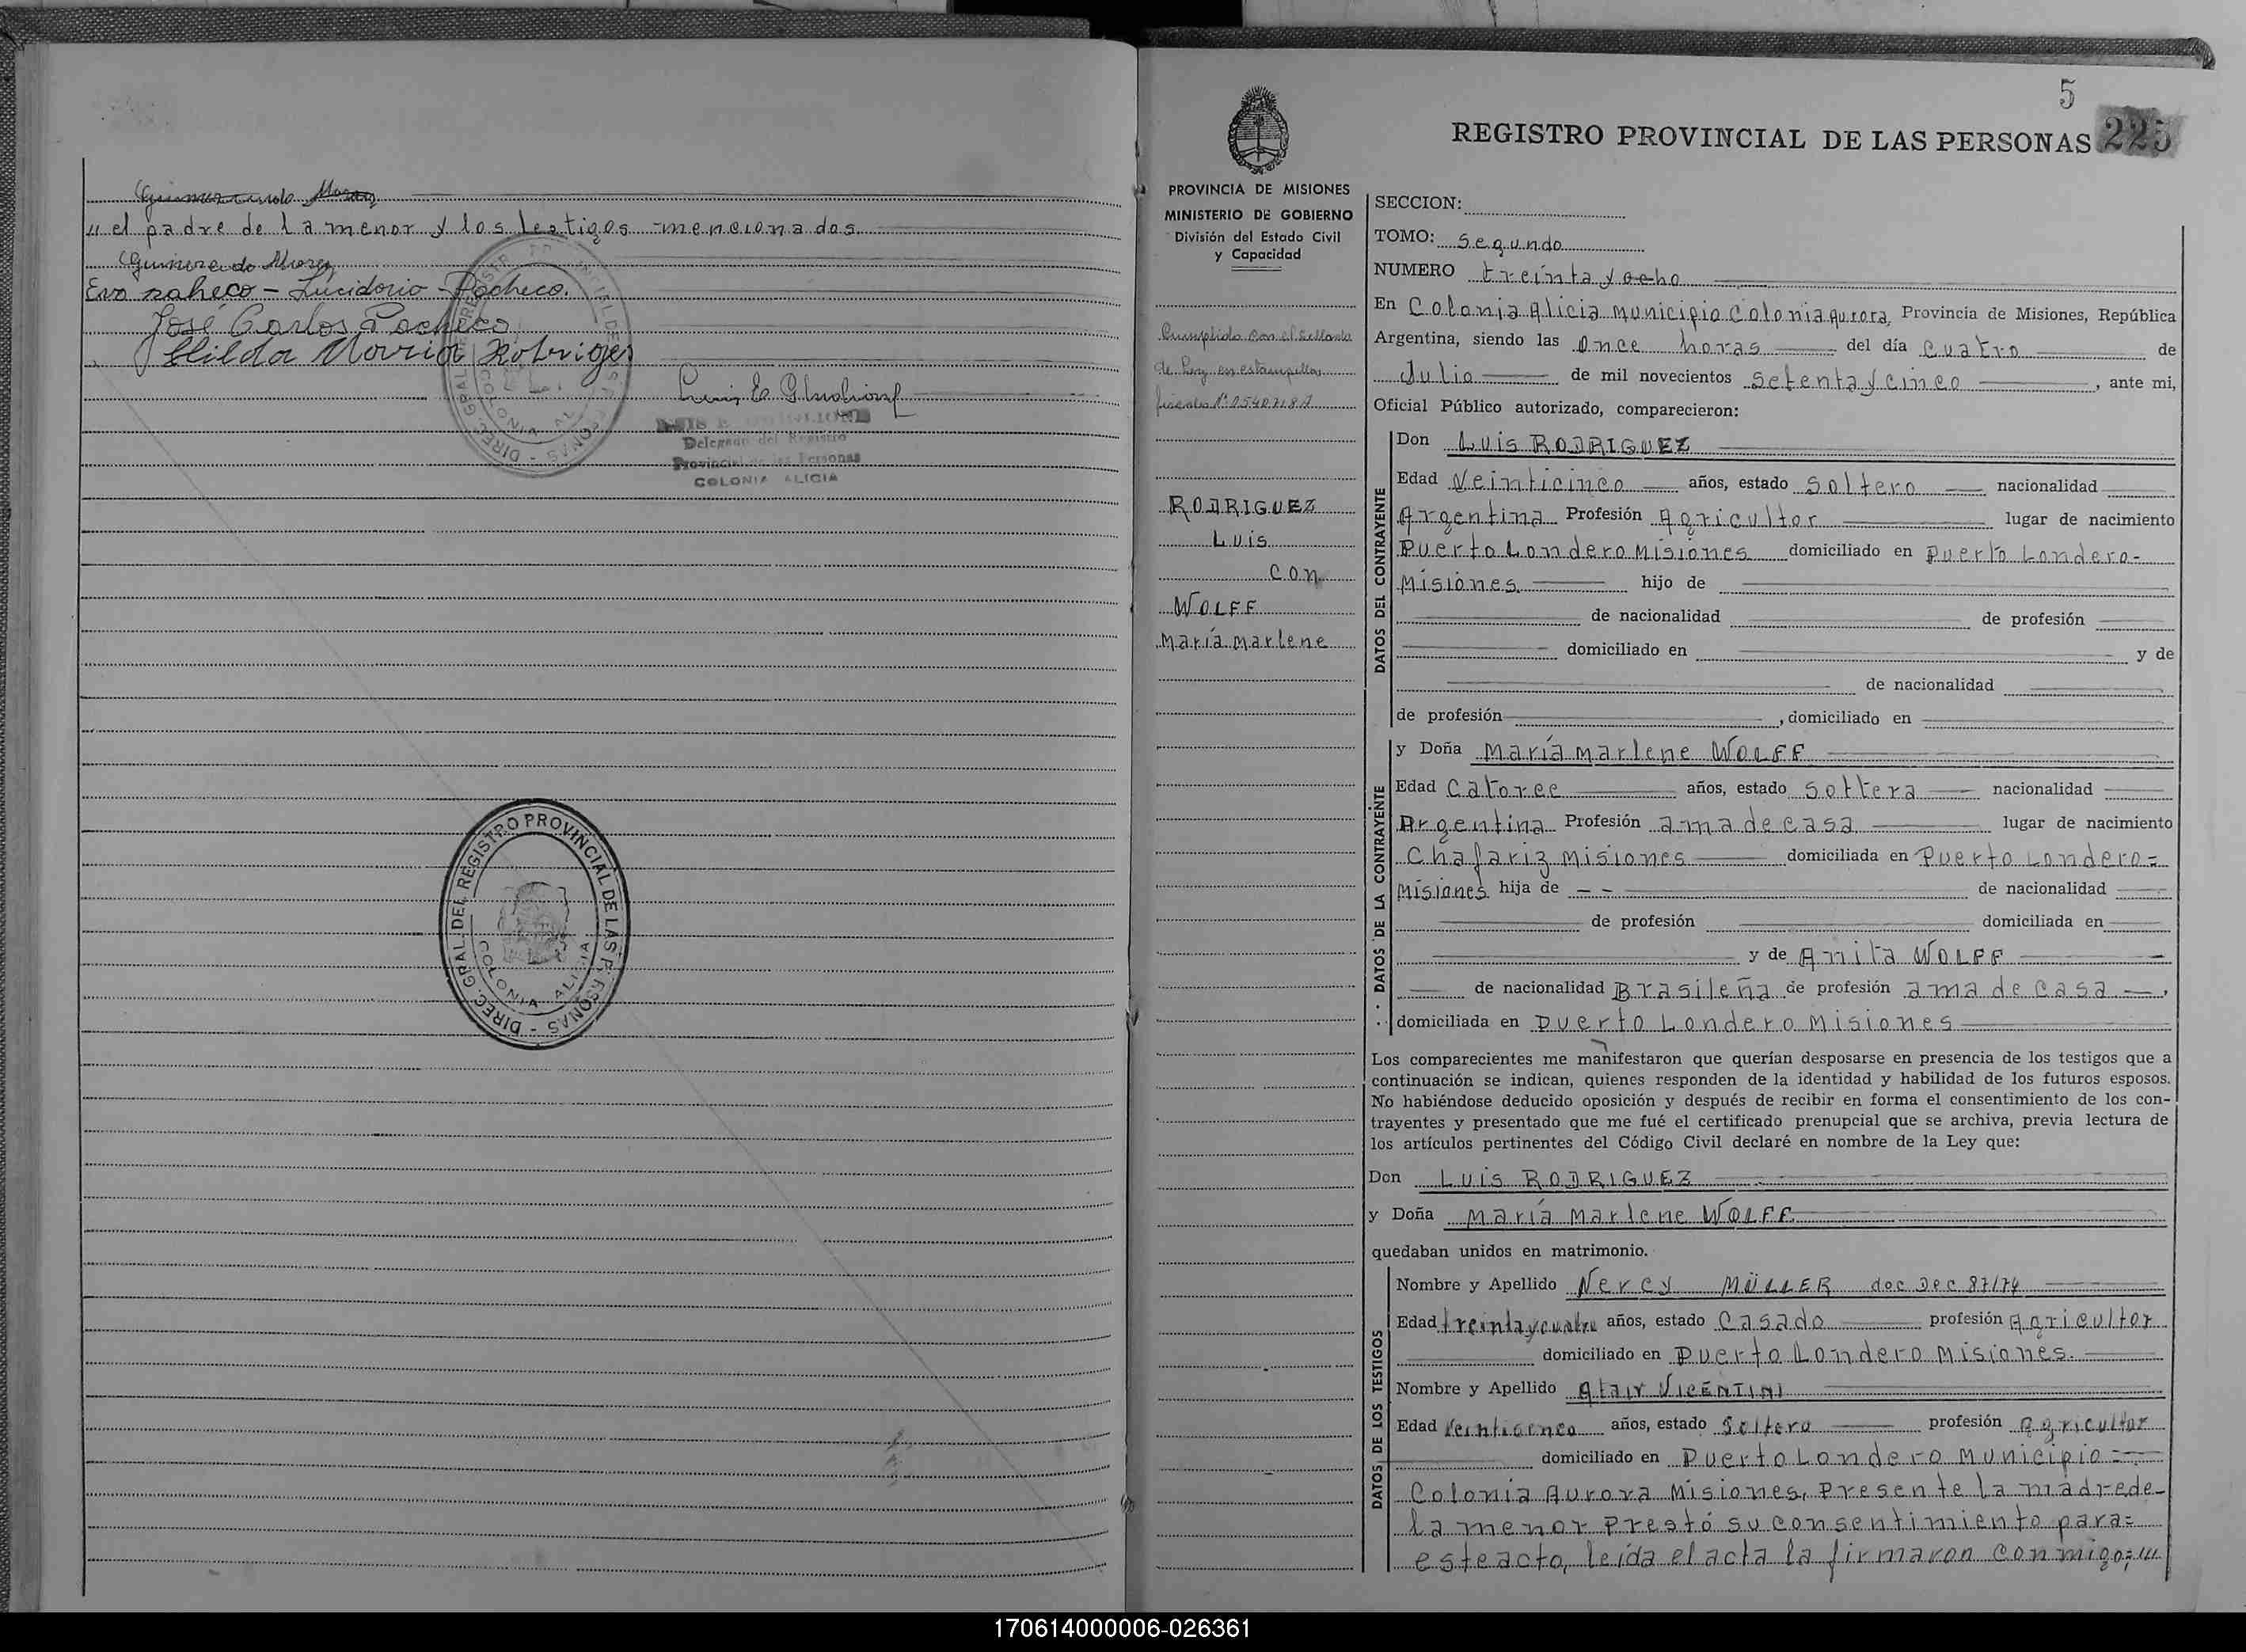 Gumercindo Moraz
" el padre de la menor y los testigos mencionados.
Gumercindo Moraz
Eva paheco - Lucidorio Pacheco.
José Carlos Pacheco
Hilda Moriia Rotrigez
Delegado del Registro
Provincial de las Personas
COLONIA ALICIA
DIREC. GRAL. DEL REGISTRO PROVINCIAL DE LAS PERSONAS -
COLONIA ALICIA
5
REGISTRO PROVINCIAL DE LAS PERSONAS 225
PROVINCIA DE MISIONES
MINISTERIO DE GOBIERNO
División del Estado Civil
y Capacidad
Cumplido con el sellado
de Ley en estampillas
fiscales Nº
RODRIGUEZ
Luis
con
WOLFF
María Marlene
SECCION:
TOMO: Segundo
NUMERO treinta y ocho
En Colonia Alicia Municipio Colonia Aurora, Provincia de Misiones, República
Argentina, siendo las once horas del día cuatro de
Julio de mil novecientos setenta y cinco, ante mi,
Oficial Público autorizado, comparecieron:
DATOS DEL CONTRAYENTE
Don Luis RODRIGUEZ
Edad Veinticinco años, estado Soltero nacionalidad
Argentina Profesión Agricultor lugar de nacimiento
Puerto Londero Misiones domiciliado en Puerto Londero-
Misiones. hijo de
de nacionalidad de profesión
domiciliado en y de
de nacionalidad
de profesión , domiciliado en
DATOS DE LA CONTRAYENTE
y Doña María Marlene WOLFF
Edad Catorce años, estado Soltera nacionalidad
Argentina Profesión ama de casa lugar de nacimiento
Chafariz Misiones domiciliada en Puerto Londero=
Misiones hija de - - de nacionalidad
de profesión domiciliada en
y de Anita WOLFF
de nacionalidad Brasileña de profesión ama de casa ,
domiciliada en Puerto Londero Misiones
Los comparecientes me manifestaron que querían desposarse en presencia de los testigos que a
continuación se indican, quienes responden de la identidad y habilidad de los futuros esposos.
No habiéndose deducido oposición y después de recibir en forma el consentimiento de los con-
trayentes y presentado que me fué el certificado prenupcial que se archiva, previa lectura de
los artículos pertinentes del Código Civil declaré en nombre de la Ley que:
Don Luis RODRIGUEZ
y Doña María Marlene WOLFF
quedaban unidos en matrimonio.
DATOS DE LOS TESTIGOS
Nombre y Apellido Nercy MÜLLER doc Dec 87/74
Edad treinta y cuatro años, estado Casado profesión Agricultor
domiciliado en Puerto Londero Misiones.
Nombre y Apellido Altair VICENTINI
Edad Veinticinco años, estado Soltero profesión Agricultor
domiciliado en Puerto Londero Municipio =
Colonia Aurora Misiones, Presente la madre de
la menor Prestó su consentimiento para=
este acto, leída el acta la firmaron conmigo; ///
170614000006-026361